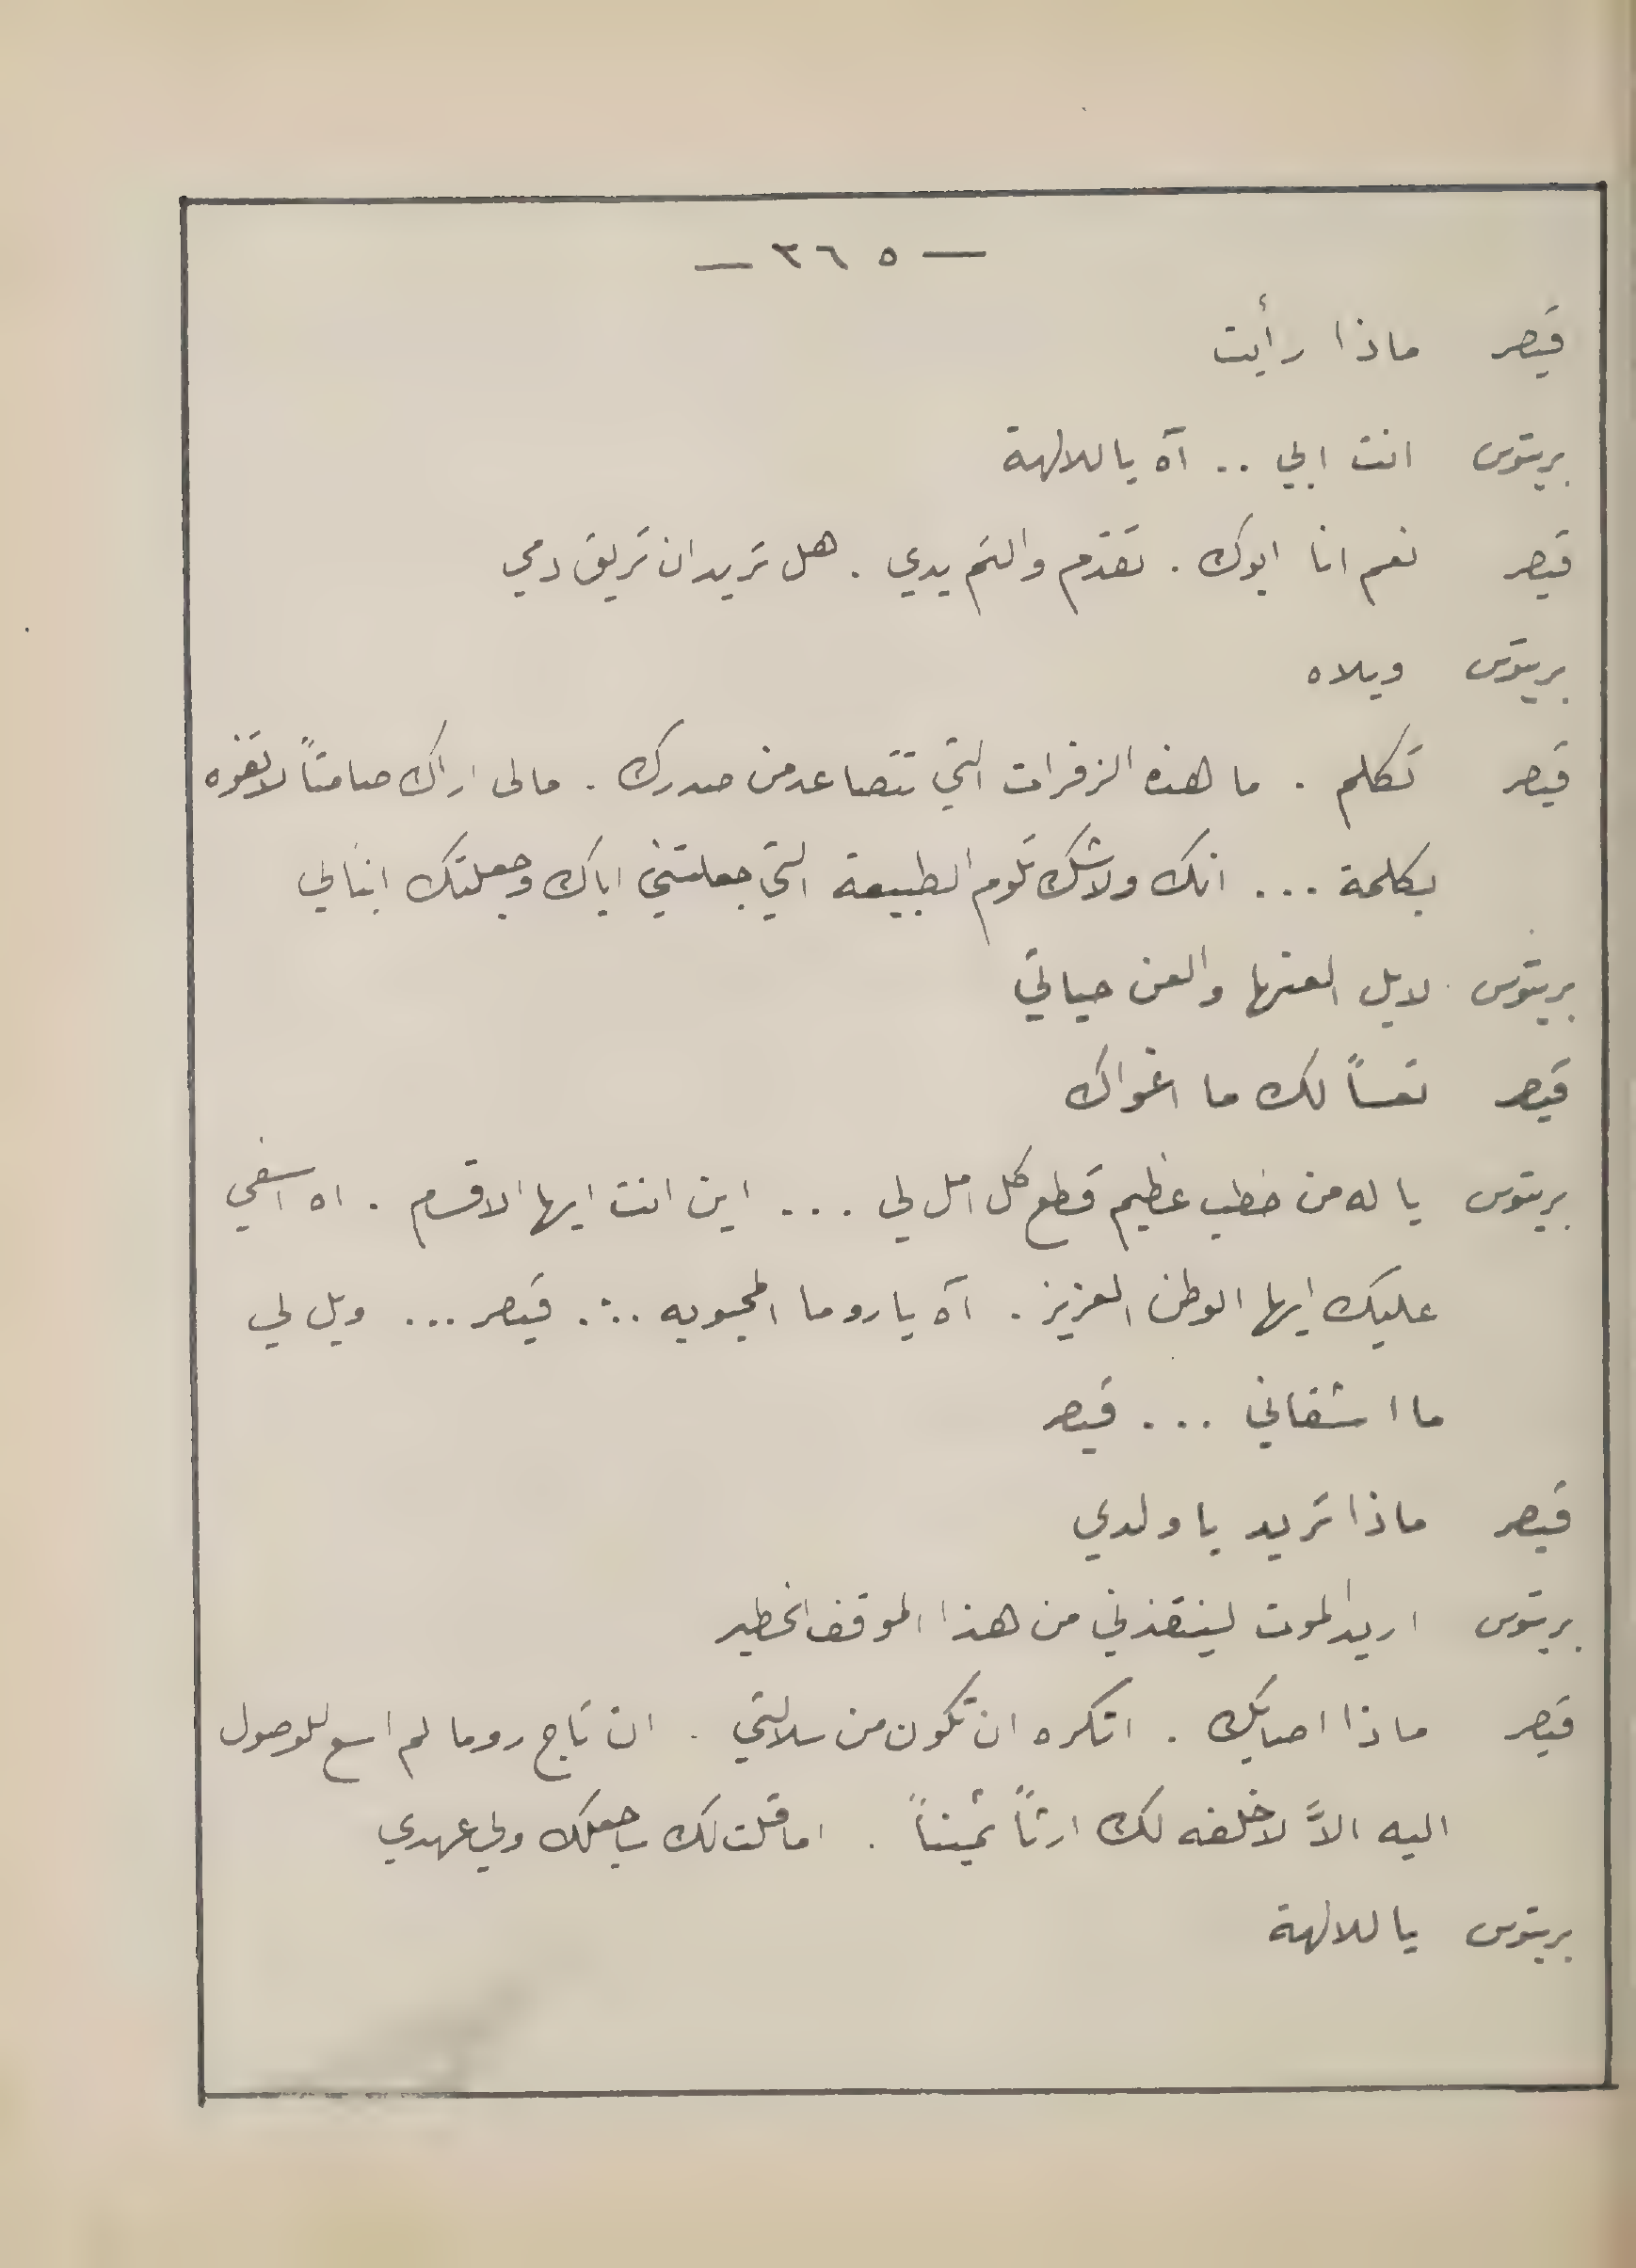 — ٣٦٥ —
قيصر ماذا رأيت
بريتوس انت ابي .. آه يا للالهة
قيصر نعم انا ابوك . تقدّم والثم يدي . هل تريد ان تريق دمي
بريتوس ويلاه
قيصر تكلم . ما هذه الزفرات التي تتصاعد من صدرك . مالى اراك صامتاً لا تفوه
بكلمة ... انك ولا شك تلوم الطبيعة التي جعلتني اباك وجعلتك ابناً لي
بريتوس لا بل العنها والعن حياتي
قيصر تعساً لك ما اغواك
بريتوس يا له من خطب عظيم قطع كل امل لي ... اين انت ايها الاقسام . اه اسفي
عليك ايها الوطن العزيز . آه يا روما المحبوبه ... قيصر ... ويل لي
ما اشقاني ... قيصر
قيصر ماذا تريد يا ولدي
بريتوس اريد الموت لينقذني من هذا الموقف الخطير
قيصر ماذا اصابك . اتكره ان تكون من سلالتي . ان تاج روما لم اسع للوصول
اليه الاَّ لاخلفه لك ارثاً ثميناً . اما قلت لك ساجعلك ولي عهدي
بريتوس يا للالهة